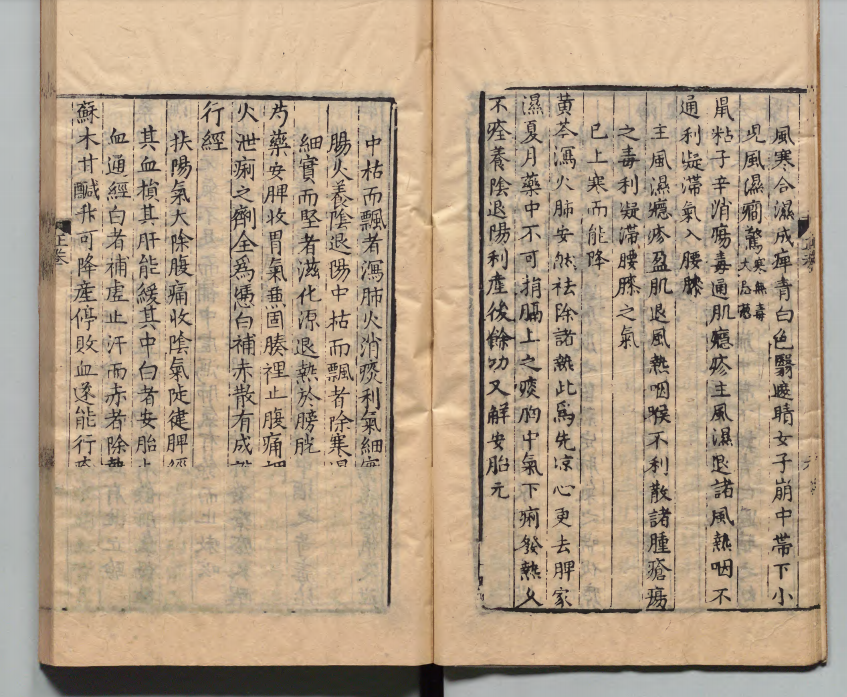 風寒合濕成痺青白色翳䁾睛女子崩中帶下小
児風濕癎驚寒無毒
大伤卷
鼠粘子辛消瘍毒通肌癮疹主風濕退諸風熱咽不
通利凝滯氣入腰膝
主風濕癮疹盈肌退風熱咽喉不利散諸腫瘡瘍
之毒利凝滯腰膝之氣
已上寒而能降
黃芩瀉火肺安然祛除諸熱此爲先凉心更去脾家
濕夏月藥中不可捐膈上之痰胸中氣下痢發熱久
不痊養陰退陽利産後餘功又解安胎元
中枯而飄者瀉肺火消痰利氣細實
腸火養陰退陽中枯而飄者除寒濕
細實而堅者滋化源退熱於膀胱
芍藥安脾收胃氣兼固腠裡止腹痛
火泄痢之劑全爲憑白補赤散有成
行經
扶陽氣大除腹痛收陰氣陡健脾經
其血槓其肝能緩其中白者安胎止
血通經白者補虛止汗而赤者除熱
蘇木甘鹹升可降産停敗血遂能行